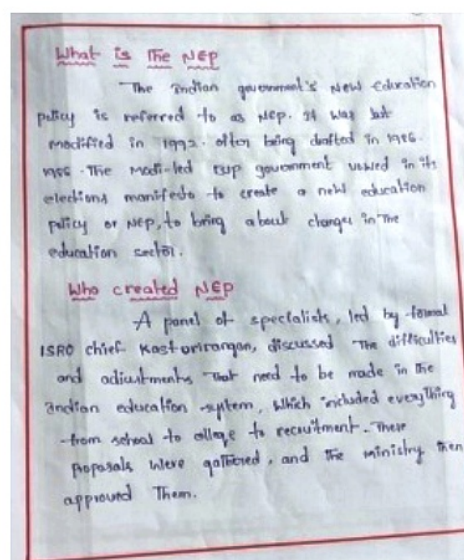 What is The NEP
The Indian government's New Education
policy is referred to as NEP. It was last
modified in 1992. after being drafted in 1986.
1986. The Modi-led BJP government vowed in its
elections manifesto to create a new education
policy or NEP, to bring about changes in The
education sector.
Who created NEP
A panel of specialists, led by formal
ISRO chief Kasturirangan, discussed The difficulties
and adjustments That need to be made in the
Indian education system, which included everything
from school to college to recruitment. These
proposals were gathered, and The ministry then
approved Them.